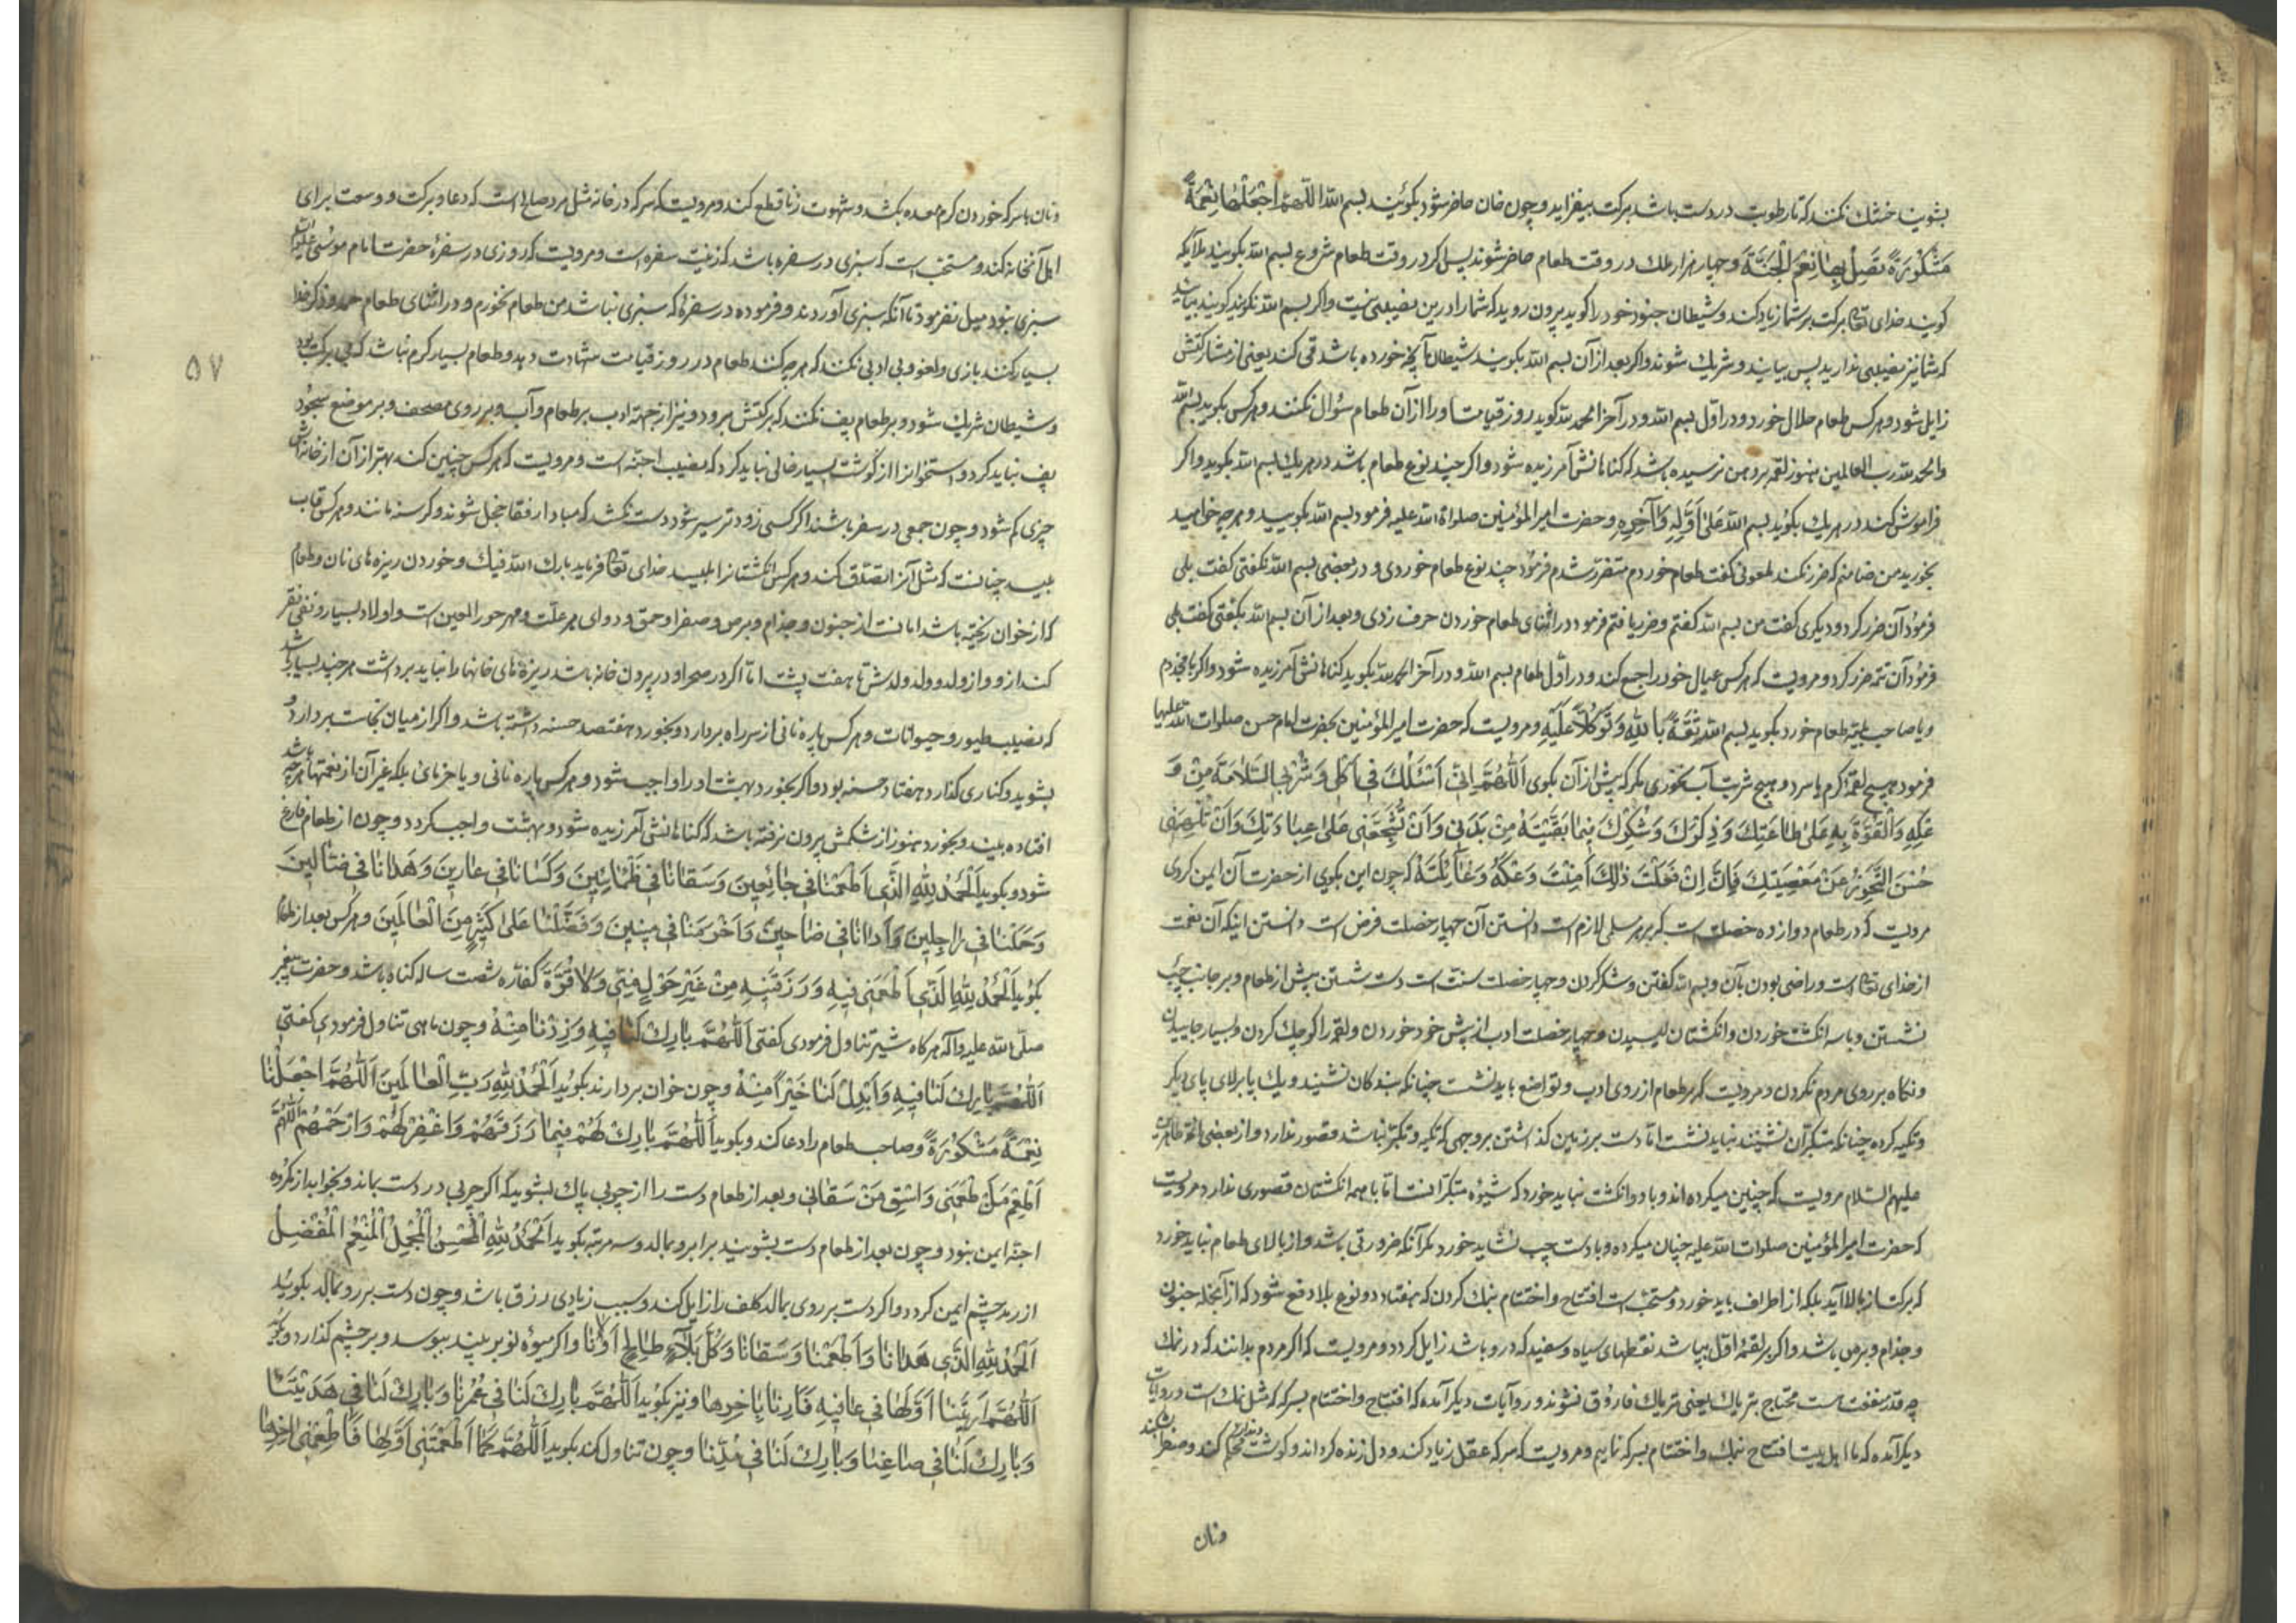 بشویند خشك نکنند که تا رطوبت در دست باشد برکت بیفزاید و چون خان حاضر شود بکوئید بسم الله اللّهُمَّ اجْعَلْهٰا نِعْمَةً
مَشْكُورَةً تَصِلُ بِهٰا نِعَمَ الْجَنَّةِ و چهار هزار ملك در وقت طعام حاضر شوند پس اکر در وقت طعام شروع بسم الله بکویند ملایکه
کویند خدای تعالی برکت بر شما زیاد کند و شیطان جنود خود را کوید بیرون روید که شما را درین نصیبی نیست و اکر بسم الله نکویند کویند بیایید
که شما نیز نصیبی ندارید پس بیایند و شریك شوند و اکر بعد از آن بسم الله بکویند شیطان آنچه خورده باشد قی کند یعنی از مشارکتش
زایل شود و هر کس طعام حلال خورد و در اول بسم الله و در آخر الحمد لله کوید روز قیامت او را از آن طعام سؤال نکنند و هر کس بکوید بسم الله
والحمد لله رب العالمین هنوز لقمه بدهن نرسیده باشد که کناهانش آمرزیده شود و اکر چند نوع طعام باشد در هر یك بسم الله بکوید و اکر
فراموش کند در هر یك بکوید بسم الله عَلىٰ اَوَّلِهِ وَ آخِرِهِ و حضرت امیر المؤمنین صلواة الله علیه فرمود بسم الله بکویید و هر چه خواهید
بخورید من ضامنم که ضرر نکند ملعونی کفت طعام خوردم متضرر شدم فرمود چند نوع طعام خوردی و در بعضی بسم الله نکفتی کفت بلی
فرمود آن ضرر کرد و دیکری کفت من بسم الله کفتم و ضرر یافتم فرمود در اثنای طعام خوردن حرف زدی و بعد از آن بسم الله نکفتی کفت بلی
فرمود آن تتمه ضرر کرد و مرویست که هر کس عیال خود را جمع کند و در اول طعام بسم الله و در آخر الحمد لله بکوید کناهانش آمرزیده شود و اکر با مجذوم
و یا صاحب طعام خورد بکوید بسم الله ثِقَةً بِاللهِ وَ تَوَكُّلاً عَلَيْهِ و مرویست که حضرت امیر المؤمنین بحضرت امام حسن صلوات الله علیهما
فرمود هیچ لقمه کرم یا سرد و هیچ شربت آب نخوری مکر که پیش از آن بکوی اَللّٰهُمَّ اِنّي اَسْئَلُكَ في اَكْلي وَ شُرْبِ السَّلٰامَةَ مِنْ وَ
عْكِهِ وَ الْقُوَّةَ بِهِ عَلىٰ طٰاعَتِكَ وَ ذِكْرِكَ وَ شُكْرِكَ فيمٰا بَقَّيْتَهُ مِنْ بَدَني وَ اَنْ تُشَجِّعَني عَلىٰ عِبٰادَتِكَ وَ اَنْ تُلْهِمَني
حُسْنَ التَّحَرُّزِ عَنْ مَعْصِيَتِكَ فَاِنَّكَ اِنْ فَعَلْتَ ذٰلِكَ اَمِنْتَ وَعْكَهُ وَ غٰائِلَتَهُ که چون این بکوی از حضرت آن ایمن کردی
مرویست که در طعام دوازده خصلت است که بر هر مسلمی لازم است دانستن آن چهار خصلت فرض است دانستن اینکه آن نعمت
از خدای تعالی است و راضی بودن بآن و بسم الله کفتن و شکر کردن و چهار خصلت سنت است دست شستن پیش از طعام و بر جانب چپ
نشستن و با سه انکشت خوردن و انکشتان لیسیدن و چهار خصلت ادب از پیش خود خوردن و لقمه را کوچك کردن و بسیار جاییدن
و نکاه بر روی مردم نکردن و مرویست که بر طعام از روی ادب و تواضع باید نشست چنانکه بندکان نشیند و یك پا بر بالای پای دیکر
و تکیه کرده چنانکه متکبران نشینند نباید نشست اما دست بر زمین کذاشتن بروجهی که تکیه و تکبر نباشد قصور ندارد و از بعضی ائمه طاهرین
علیهم السلام مرویست که چنین میکرده اند و با دو انکشت نباید خورد که شیوه متکبرانست اما با همه انکشتان قصوری ندارد مرویست
که حضرت امیر المؤمنین صلوات الله علیه چنان میکرده و با دست چپ نشاید خورد مکر آنکه ضرورتی باشد و از بالای طعام نباید خورد
که برکت از بالا آید بلکه از اطراف باید خورد و مستحب است افتتاح و اختتام بنمك کردن که هفتاد و دو نوع بلا دفع شود که از آنجمله جنون
و جذام و برص باشد و اکر بر لقمهٔ اول بپاشد نقطهای سیاه و سفید که در رو باشد زایل کردد و مرویست که اکر مردم بدانند که در نمك
چه قدر منفعت است محتاج بتریاك یعنی تریاك فاروق نشوند و در روایات دیکر آمده که افتتاح و اختتام بسرکه که مثل نمك است و در روایات
دیکر آمده که ما اهل بیت افتتاح بنمك و اختتام بسرکه نماییم و مرویست که سرکه عقل زیاد کند و دل زنده کرداند و کوشت محکم کند و صفرا بشکند
ونان
ونان با سرکه خوردن کرم معده بکشد و شهوت زنا قطع کند و مرویست که سرکه در خانه مثل مرد صالح است که دعا و برکت و وسعت برای
اهل آنخانه کند و مستحب است که سبزی در سفره باشد که زینت سفره است و مرویست که روزی در سفرهٔ حضرت امام موسی علیه السلام
سبزی نبود میل نفرمود تا آنکه سبزی آوردند و فرموده در سفرهٔ که سبزی نباشد من طعام نخورم و در اثنای طعام حمد و ذکر خدا
بسیار کنند بازی و لغو و بی ادبی نکنند که هر چه کنند طعام در روز قیامت شهادت دهد و طعام بسیار کرم نباشد که بی برکت بود
و شیطان شریك شود و بر طعام پف نکنند که برکتش برود و نیز از جهة ادب بر طعام و آب و بر روی مصحف و بر موضع سجود
پف نباید کرد و استخوانرا از کوشت بسیار خالی نباید کرد که نصیب اجنّه است و مرویست که هر کس چنین کند بهتر از آن از خانه اش
چیزی کم شود و چون جمعی در سفره باشند اکر کسی زودتر سیر شود دست نکشد که مبادا رفقا خجل شوند و کرسنه مانند و هر کس قاب
بلیسد چنانست که مثل آنرا تصدّق کند و هر کس انکشتانرا بلیسد خدای تعالی فرماید بارك الله فیك و خوردن ریزه های نان و طعام
که از خوان ریخته باشد امانست از جنون و جذام و برص و صفرا و حمق و دوای هر علّت و مهر حور العین است و اولاد بسیار و نفی فقر
کند از و و از ولد و ولد ولدش تا هفت پشت اما اکر در صحرا و در بیرون خانه باشد ریزه های خانها را نباید برداشت هر چند بسیار باشد
که نصیب طیور و حیوانات و هر کس پاره نانی از سر راه بردارد و بخورد هفتصد حسنه داشته باشد و اکر از میان نجاست بردارد و
بشوید و کناری کذارد هفتاد حسنه بود و اکر بخورد بهشت او را واجب شود و هر کس پاره نانی و یا خرمائی بلکه غیر آن از نعمتها هر چه باشد
افتاده بیند و بخورد هنوز از شکمش بیرون نرفته باشد که کناهانش آمرزیده شود و بهشت واجب کردد و چون از طعام فارغ
شود و بکوید اَلْحَمْدُ لِلّٰهِ الَّذي اَطْعَمَنٰا في جٰائِعينَ وَ سَقٰانٰا في ظَمٰانينَ وَ كَسٰانٰا في عٰارينَ وَ هَدٰانٰا في ضٰالّينَ
وَ حَمَلَنٰا في رٰاجِلينَ وَ آوٰانٰا في ضٰاحينَ وَ اَخْدَمَنٰا في مهينينَ وَ فَضَّلَنٰا عَلىٰ كَثيرٍ مِنَ الْعٰالَمينَ و هر کس بعد از طعام
بکوید اَلْحَمْدُ لِلّٰهِ الَّذي اَطْعَمَني فيهِ وَ رَزَقَنيهِ مِنْ غَيْرِ حَوْلٍ مِنّي وَ لٰا قُوَّةَ کفاره شصت ساله کناه باشد و حضرت پیغمبر
صلّی الله علیه و آله هر کاه شیر تناول فرمودی کفتی اَللّٰهُمَّ بٰارِكْ لَنٰا فيهِ وَ زِدْنٰا مِنْهُ و چون ماهی تناول فرمودی کفتی
اَللّٰهُمَّ بٰارِكْ لَنٰا فيهِ وَ اَبْدِلْ لَنٰا خَيْراً مِنْهُ و چون خوان بردارند بکوید اَلْحَمْدُ لِلّٰهِ رَبِّ الْعٰالَمينَ اَللّٰهُمَّ اجْعَلْهٰا
نِعْمَةً مَشْكُورَةً و صاحب طعام را دعا کند و بکوید اَللّٰهُمَّ بٰارِكْ لَهُمْ فيمٰا رَزَقْتَهُمْ وَ اغْفِرْ لَهُمْ وَ ارْحَمْهُمْ اَللّٰهُمَّ
اَطْعِمْ مَنْ طْعَمَني وَ اسْقِ مَنْ سَقٰاني و بعد از طعام دست را از چربی پاك بشوید که اکر چربی در دست بماند و بخوابد از مکروه
اجنه ایمن نبود و چون بعد از طعام دست بشویند بر ابرو بمالد و سه مرتبه بکوید اَلْحَمْدُ لِلّٰهِ الْمُحْسِنِ الْمُجْمِلِ الْمُنْعِمِ الْمُفْضِلِ
از رمد چشم ایمن کردد و اکر دست بر روی بمالد کلف را زایل کند و سبب زیادی رزق باشد و چون دست بر رو بمالد بکوید
اَلْحَمْدُ لِلّٰهِ الَّذي هَدٰانٰا وَ اَطْعَمَنٰا وَ سَقٰانٰا وَ كُلَّ بَلٰاءٍ صٰالِحٍ اَوْلٰانٰا و اکر میوه نوبر بیند ببوسد و بر چشم کذارد و بکوید
اَللّٰهُمَّ اَرَيْتَنٰا اَوَّلَهٰا في عٰافِيَهٍ فَاَرِنٰا اٰخِرَهٰا و نیز بکوید اَللّٰهُمَّ بٰارِكْ لَنٰا في عُمْرِنٰا وَ بٰارِكْ لَنٰا في
وَ بٰارِكْ لَنٰا في صٰاعِنٰا وَ بٰارِكْ لَنٰا في مُدِّنٰا و چون تناول کند بکوید اَللّٰهُمَّ كَمٰا اَطْعَمْتَني اَوَّلَهٰا فَاَطْعِمْني اٰخِرَهٰا
۵۷